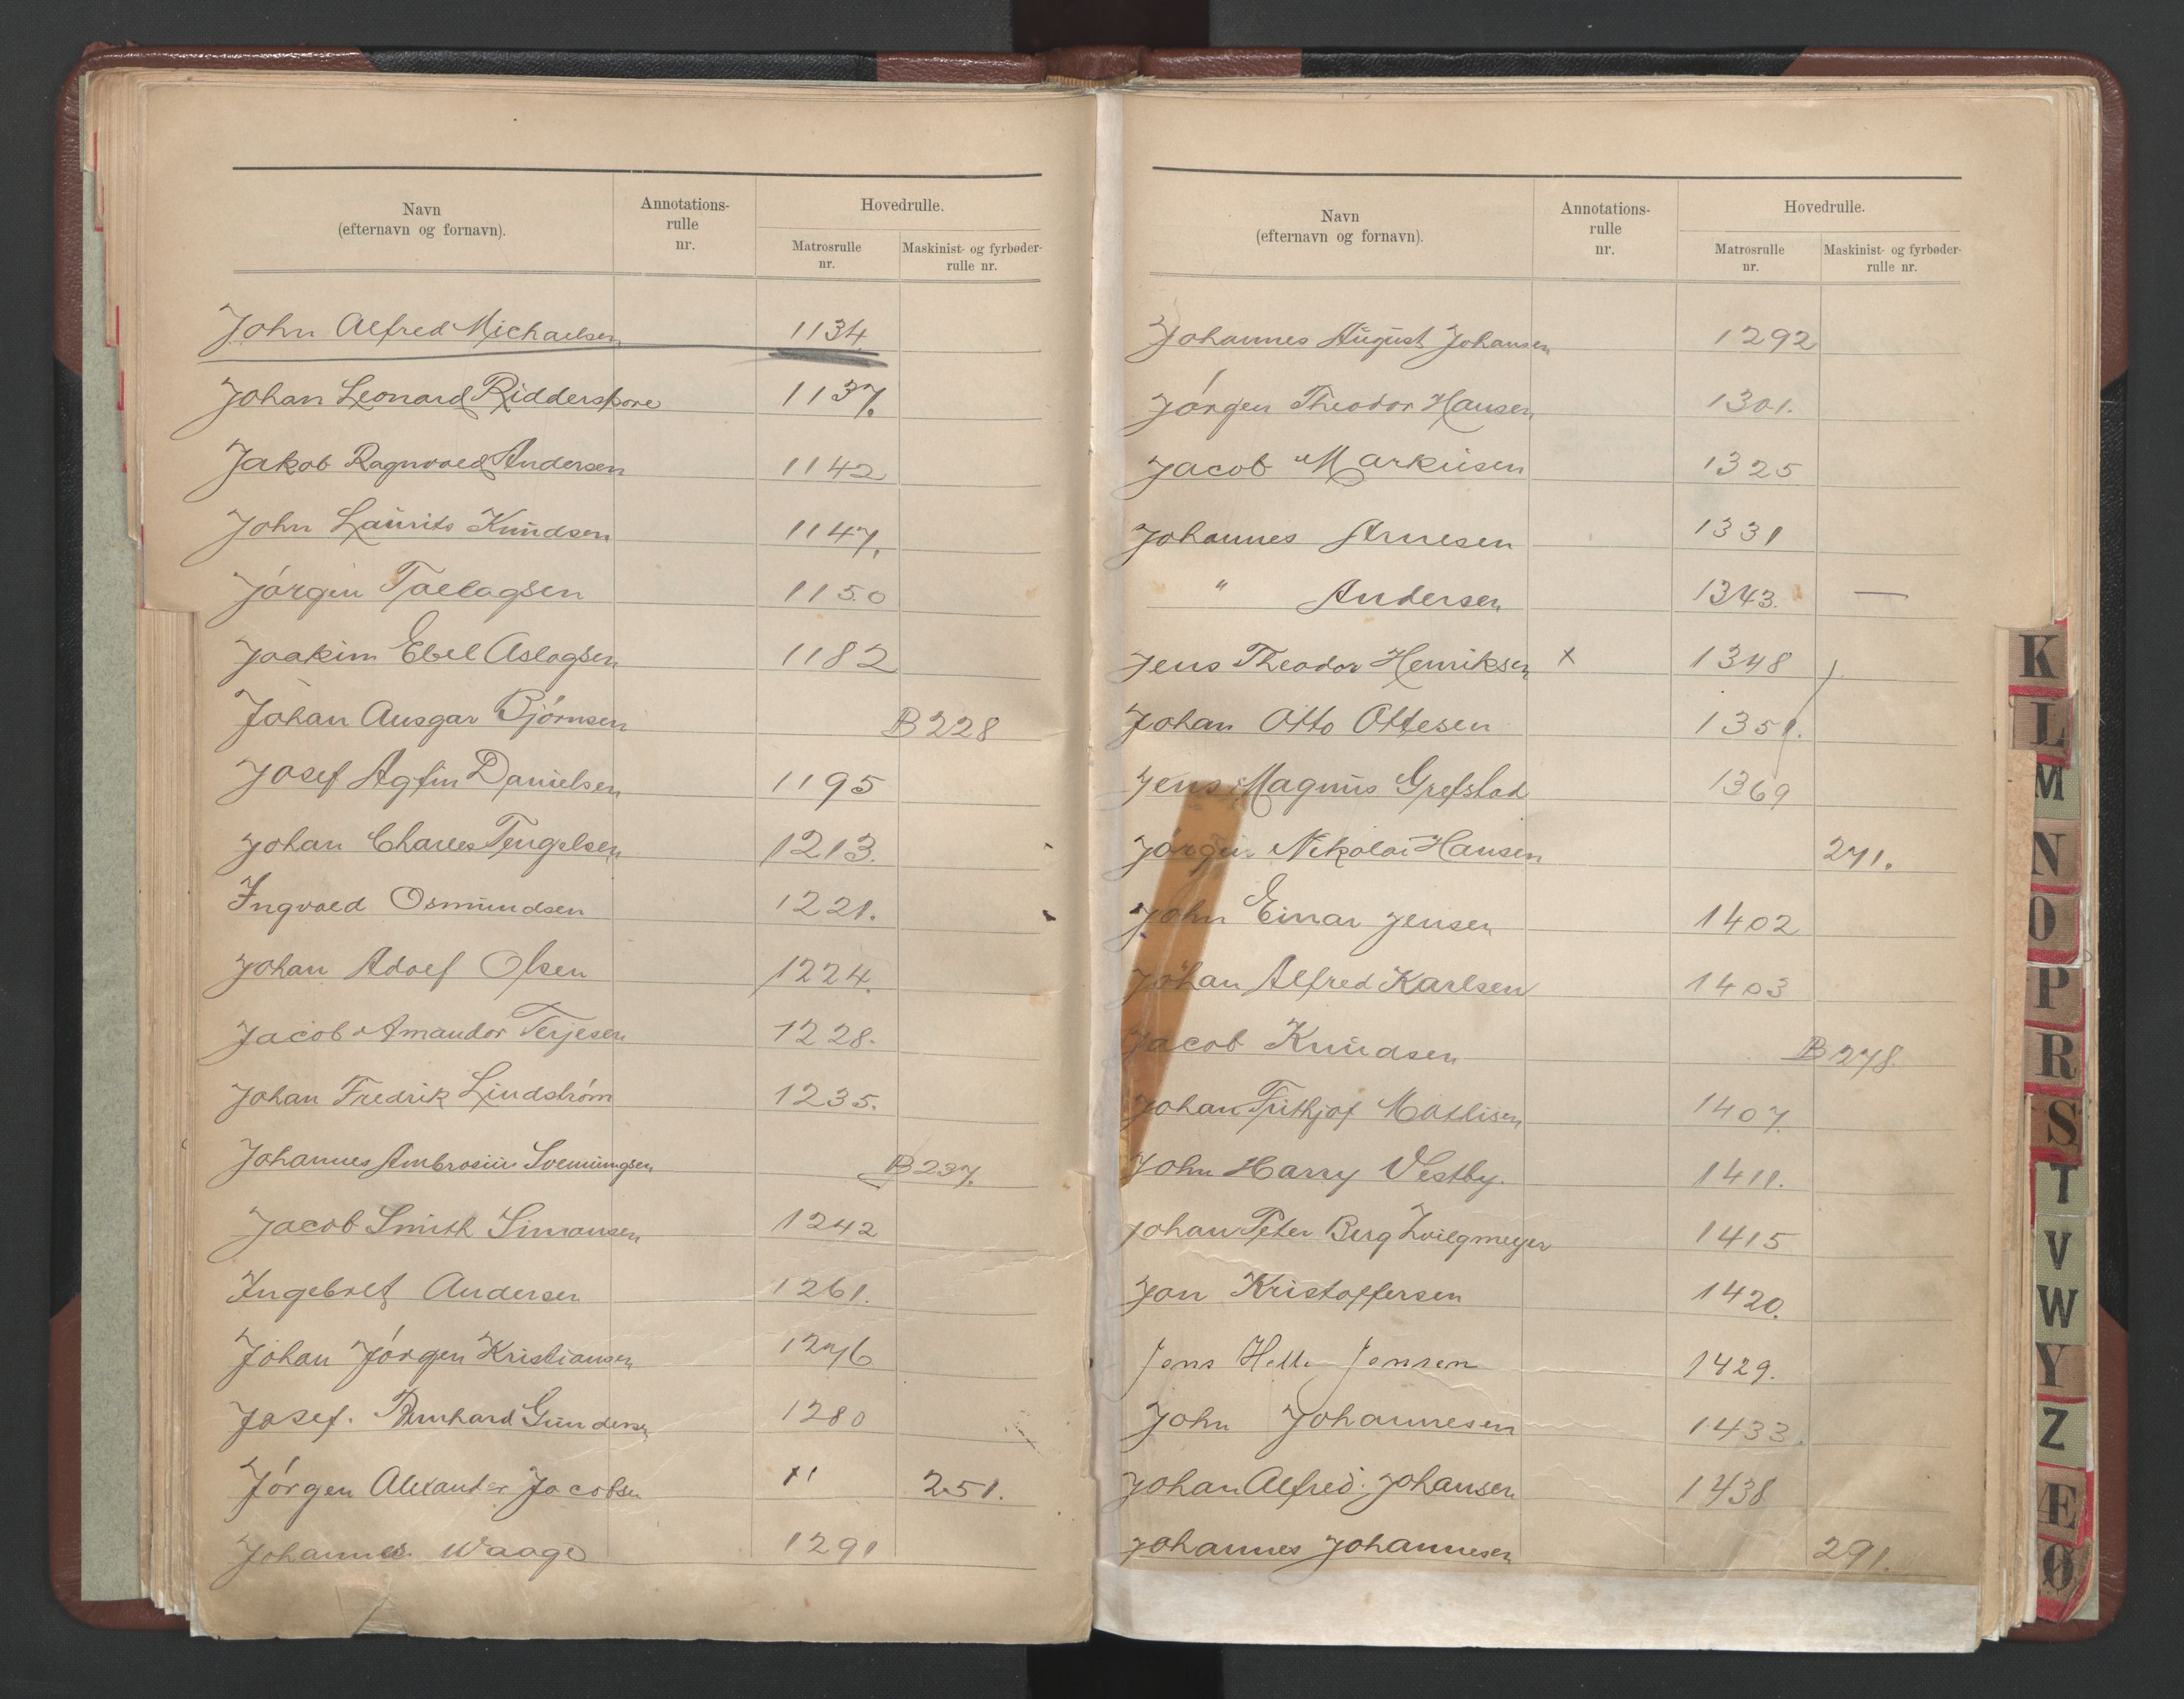 Navn
(efternavn og fornavn).
Annotations-
rulle
nr.
Hovedrulle.
Matrosrulle
nr.
Maskinist- og fyrbøder-
rulle nr.
John Alfred Michaelsen 1134
Johan Leonard Ridderskore 1137.
Jakob Ragnvald Andersen 1142
John Laurits Knudsen 1147.
Jörgin Taelagsen 1150
Joakim Ebel Aslagsen 1182
Johan Ansgar Björnsen B 228
Josef Agfin Danielsen 1195
Johan Charles Tengelsen 1213.
Ingvald Osmundsen 1221.
Johan Adolf Olsen 1224.
Jacob Amandor Terjesen 1228.
Johan Fredrik Lindström 1235.
Johannes Ambrosius Svenningsen B 237.
Jacob Smith Simonsen 1242
Ingebret Andersen 1261.
Johan Jörgen Kristiansen 1276
Josef. Bernhard Gundersen 1280
Jörgen Alexander Jacobsen 251.
Johannes Waage 1291
Navn
(efternavn og fornavn).
Annotations-
rulle
nr.
Hovedrulle.
Matrosrulle
nr.
Maskinist- og fyrbøder-
rulle nr.
Johannes August Johansen 1292
Jörgen Theodor Hansen 1301.
Jacob Markusen 1325
Johannes Arnesen 1331
" Andersen 1343. —
Jens Theodor Henriksen x 1348
Johan Otto Ottesen 1351.
Jens Magnus Grefstad 1369
Jörgen Nikolai Hansen 271.
John Einar Jensen 1402
Johan Alfred Karlsen 1403
Jacob Knudsen B 278.
Johan Frithjof Mathisen 1407.
John Harry Vestby. 1411.
Johan Peter Berg Zwilgmeyer 1415
Jon Kristoffersen 1420.
Jens Helle Jensen 1429.
John Johannesen 1433.
Johan Alfred Johansen 1438
Johannes Johannesen 291.
K
L
M
N
O
P
R
S
T
V
W
Y
Z
Æ
Ø